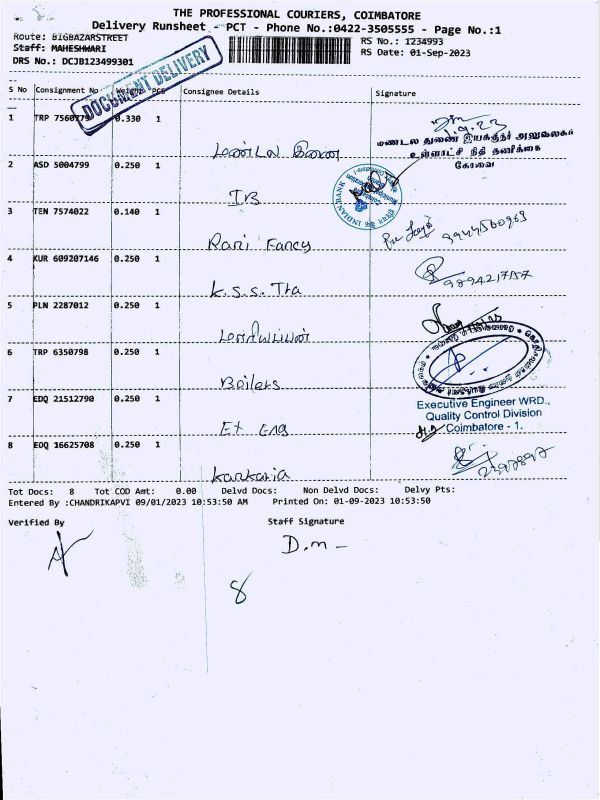 THE PROFESSIONAL COURIERS, COIMBATORE
Delivery Runsheet - PCT - Phone No.:0422-3505555 - Page No.:1
Route: BIGBAZARSTREET
RS No.: 1234993
Staff: MAHESHWARI
RS Date: 01-Sep-2023
DRS No.: DCJB123499301
DOCUMENT DELIVERY
S No Consignment No Weight PCS Consignee Details Signature
1 TRP 7560779 0.330 1
மண்டல இணை
1.9.23
மண்டல துணை இயக்குநர் அலுவலகம்
உள்ளாட்சி நிதி தணிக்கை
கோவை
2 ASD 5004799 0.250 1
IB
INDIAN BANK
3 TEN 7574022 0.140 1
Rani Fancy
4 KUR 609207146 0.250 1
K.S.S. Tra
9894217157
5 PLN 2287012 0.250 1
6 TRP 6350798 0.250 1
Boilers
7 EDQ 21512790 0.250 1
Ex Eng
Executive Engineer WRD.,
Quality Control Division
Coimbatore - 1.
8 EDQ 16625708 0.250 1
Karkaria
Tot Docs: 8 Tot COD Amt: 0.00 Delvd Docs: Non Delvd Docs: Delvy Pts:
Entered By :CHANDRIKAPVI 09/01/2023 10:53:50 AM Printed On: 01-09-2023 10:53:50
Verified By Staff Signature
D.m
8